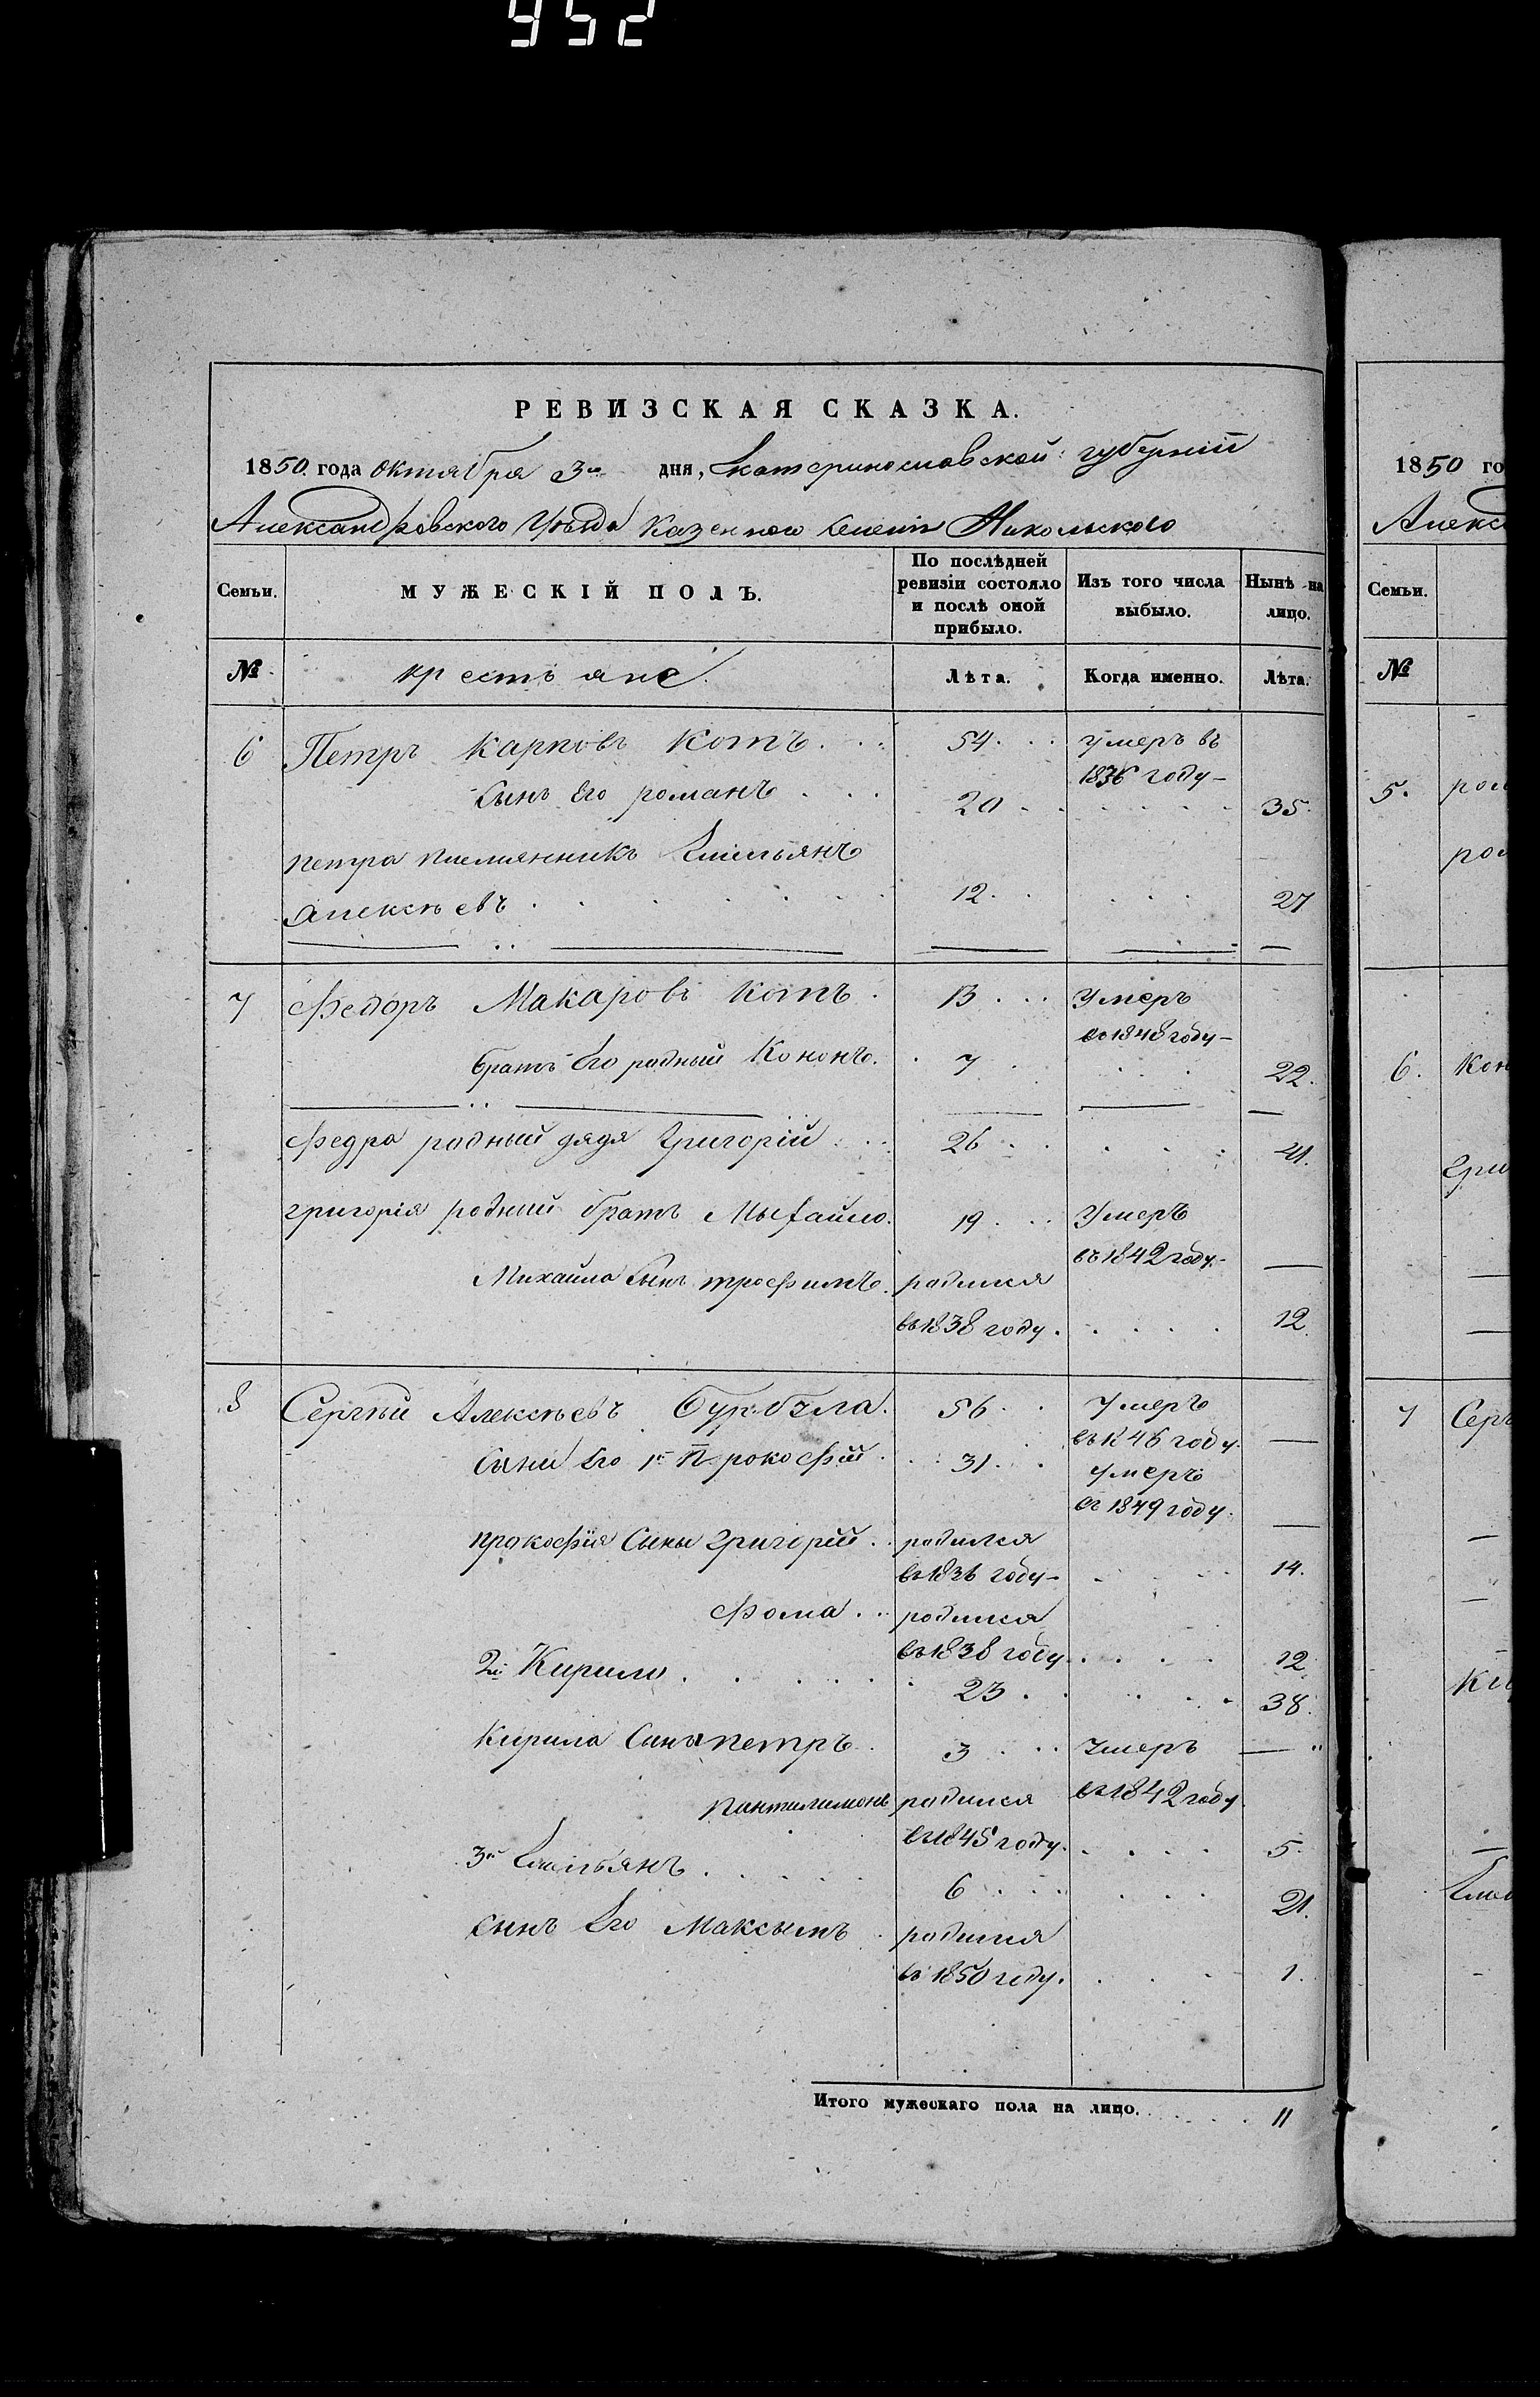 952
РЕВИЗСКАЯ СКАЗКА.
1850 года Октября 3го дня, Екатеринославской губернии
Александровского Уѣзда Казенного Селения Никольского
Семьи. МУЖЕСКІЙ ПОЛЪ. По послѣдней ревизіи состояло и послѣ оной прибыло. Изъ того числа выбыло. Нынѣ на лицо.
№ крестьяне. Лѣта. Когда именно. Лѣта.
6 Петръ Карповъ Котъ 54 умеръ въ
1836 году
Сынъ Его романъ 20 35
петра племянникъ Емельянъ
Алексѣевъ 12 27
7 Федоръ Макаровъ Котъ 13 Умеръ
въ 1848 году
братъ Его родный Кононъ 7 22
Федра родный дядя Григорій 26 41
григорія родный братъ Мыхайло 19 Умеръ
въ 1842 году
Михайла Сынъ трофимъ родился
въ 1838 году 12
8 Сергѣй Алексѣевъ 56 Умеръ
въ 1846 году
Сыни Его 1й Прокофій 31 умеръ
въ 1849 году
прокофія Сыны Григорій родился
въ 1836 году 14
Фома родился
въ 1838 году 12
2й Кирило 23 38
Кирила Сынъ петръ 3 Умеръ
въ 1842 году
пантилимонъ родился
въ 1845 году 5
3й Емельянъ 6 21
сынъ Его Максымъ родился
въ 1850 году 1
Итого мужескаго пола на лицо. 11
1850 го
Алекс
Семьи.
№
5.
6. Кон
Гри
7 Серг
Ки
Емел